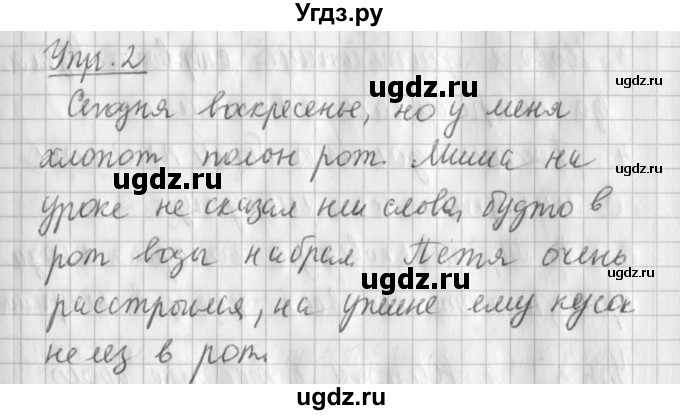 Угдз.ру
Упр. 2
ugdz.ru
ugdz.ru
Сегодня воскресенье, но у меня
хлопот полон рот. Миша на
ugdz.ru
ugdz.ru
уроке не сказал ни слова, будто в
рот воды набрал. Петя очень
ugdz.ru
ugdz.ru
расстроился, на ужине ему кусок
не лез в рот.
ugdz.ru
ugdz.ru
ugdz.ru